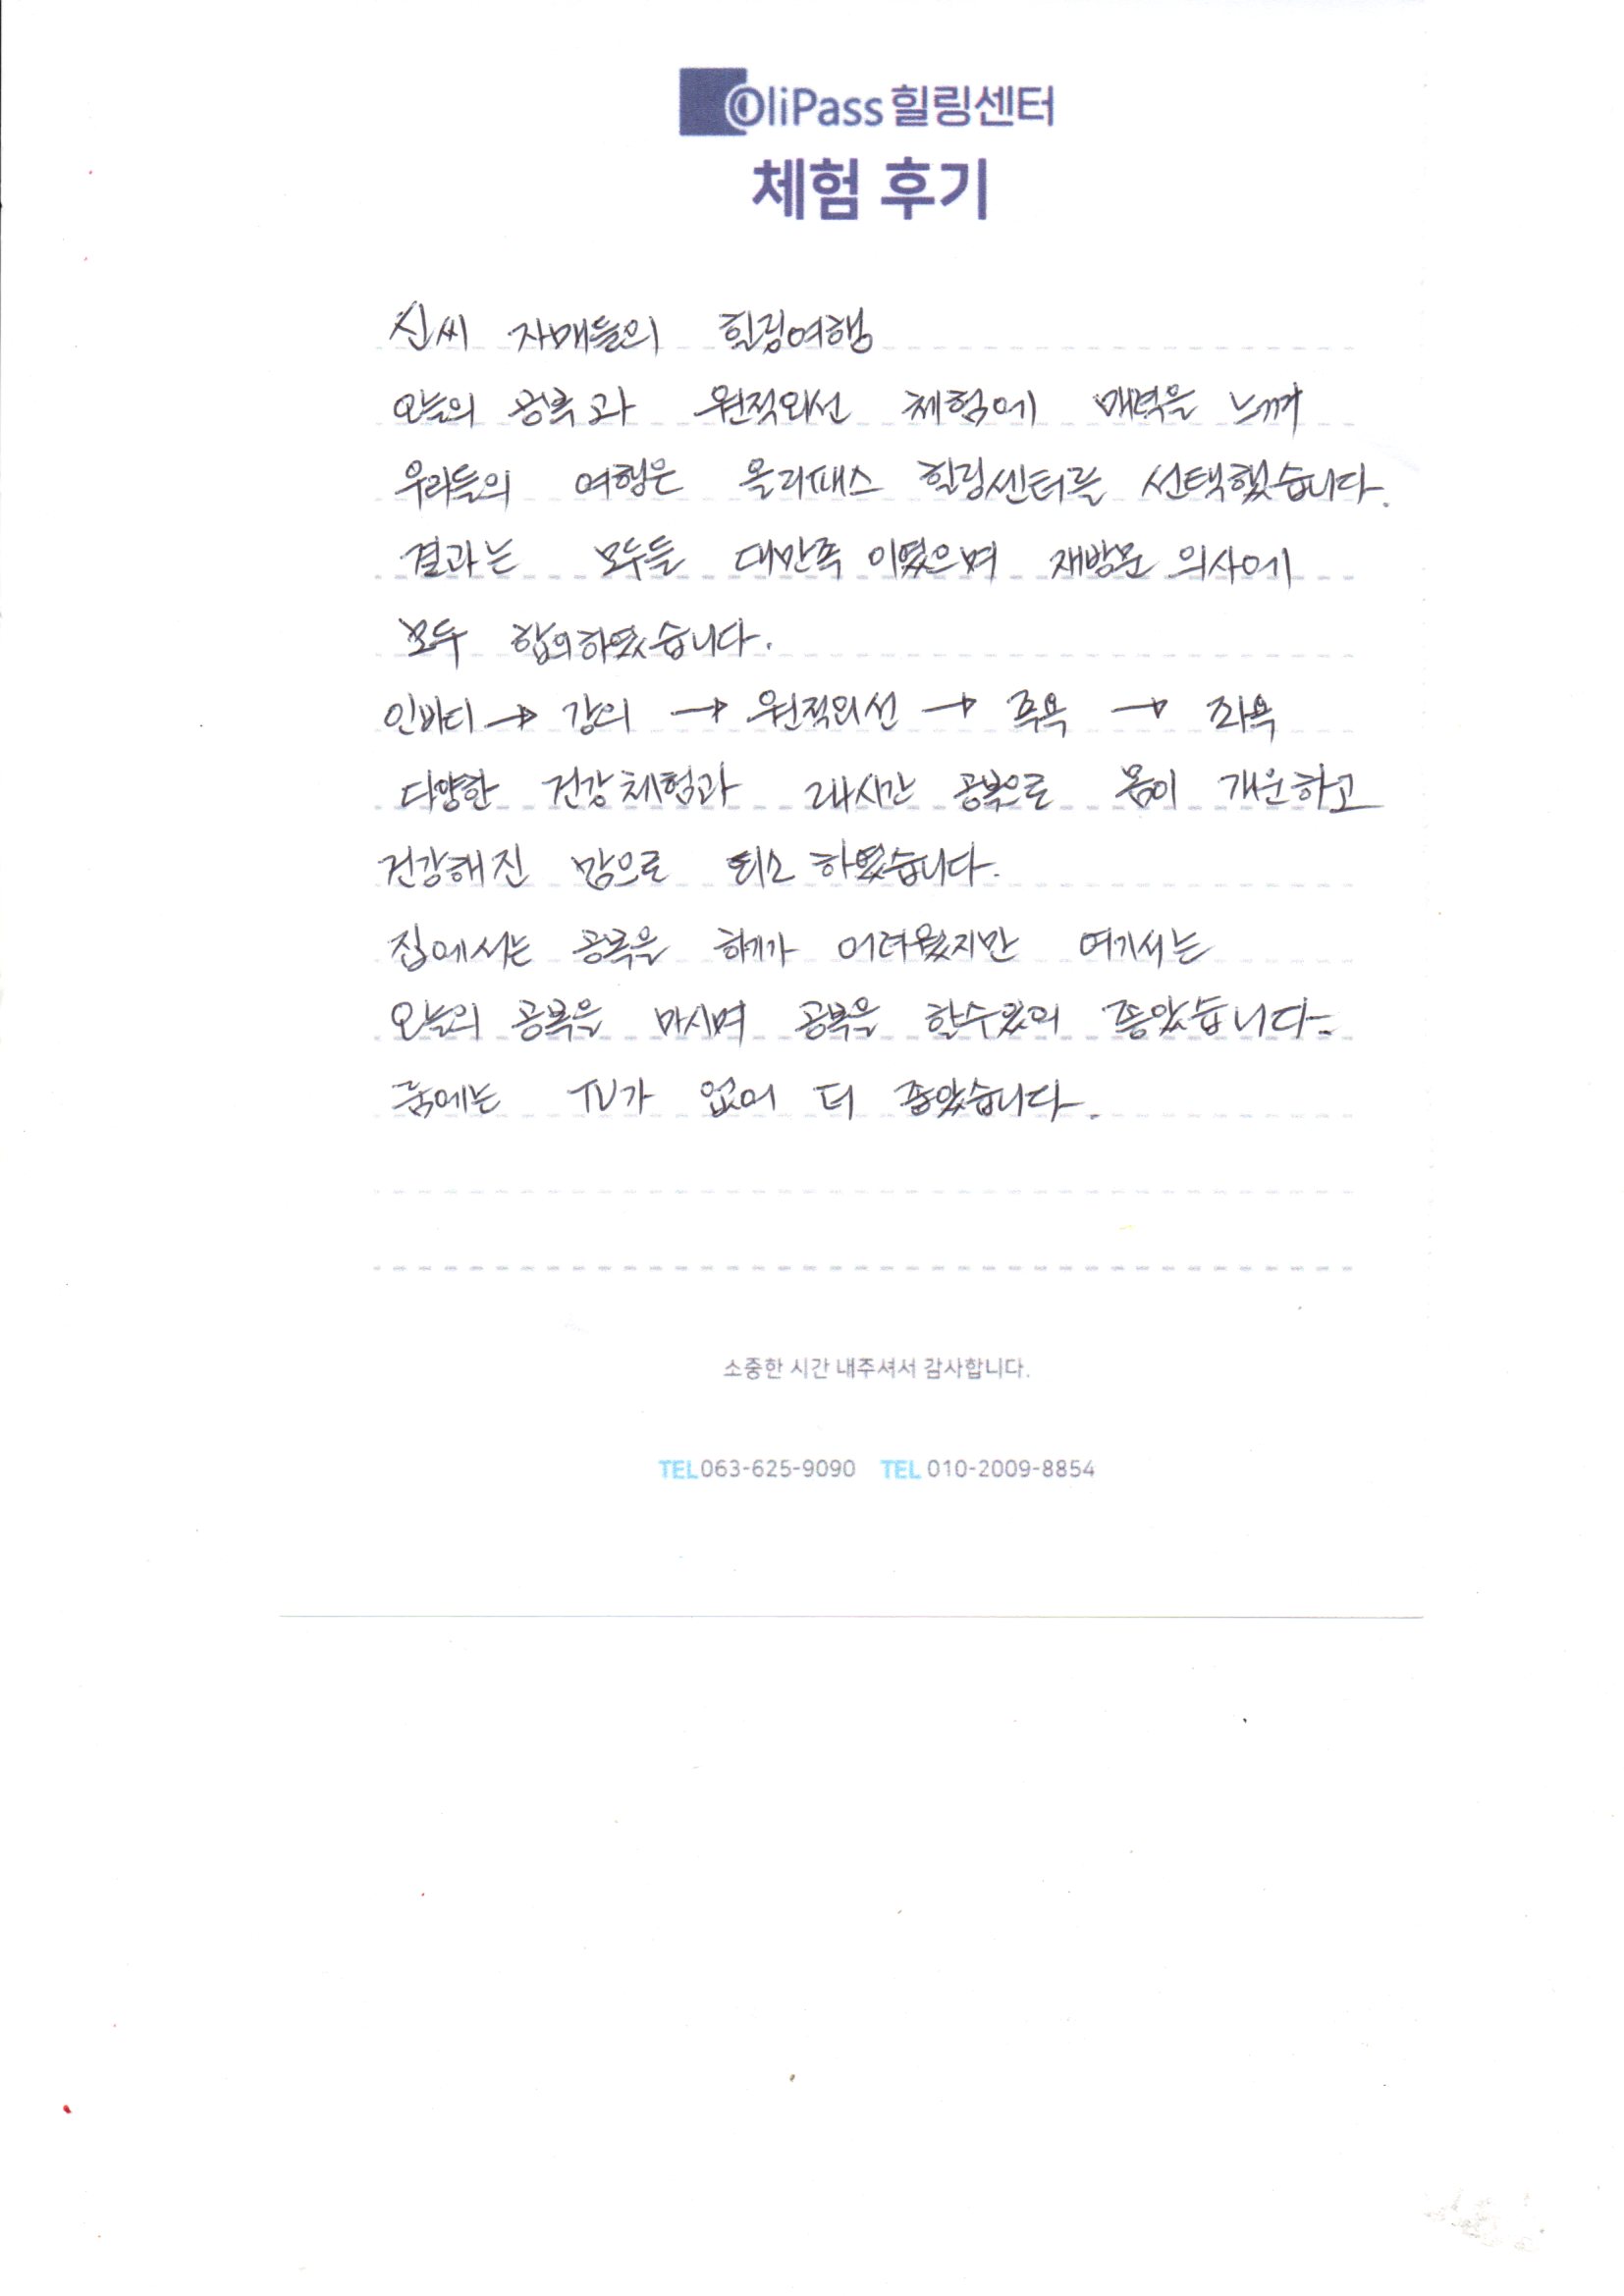 OliPass 힐링센터
체험 후기
신씨 자매들의 힐링여행
오늘의 공복과 원적외선 체험에 매력을 느껴
우리들의 여행은 올리패스 힐링센터를 선택했습니다.
결과는 모두들 대만족 이였으며 재방문 의사에
모두 합의하였습니다.
인바디 → 강의 → 원적외선 → 족욕 → 좌욕
다양한 건강체험과 24시간 공복으로 몸이 개운하고
건강해진 맘으로 퇴소 하였습니다.
집에서는 공복을 하기가 어려웠지만 여기서는
오늘의 공복을 마시며 공복을 할수있어 좋았습니다.
룸에는 TV가 없어 더 좋았습니다.
소중한 시간 내주셔서 감사합니다.
TEL 063-625-9090 TEL 010-2009-8854